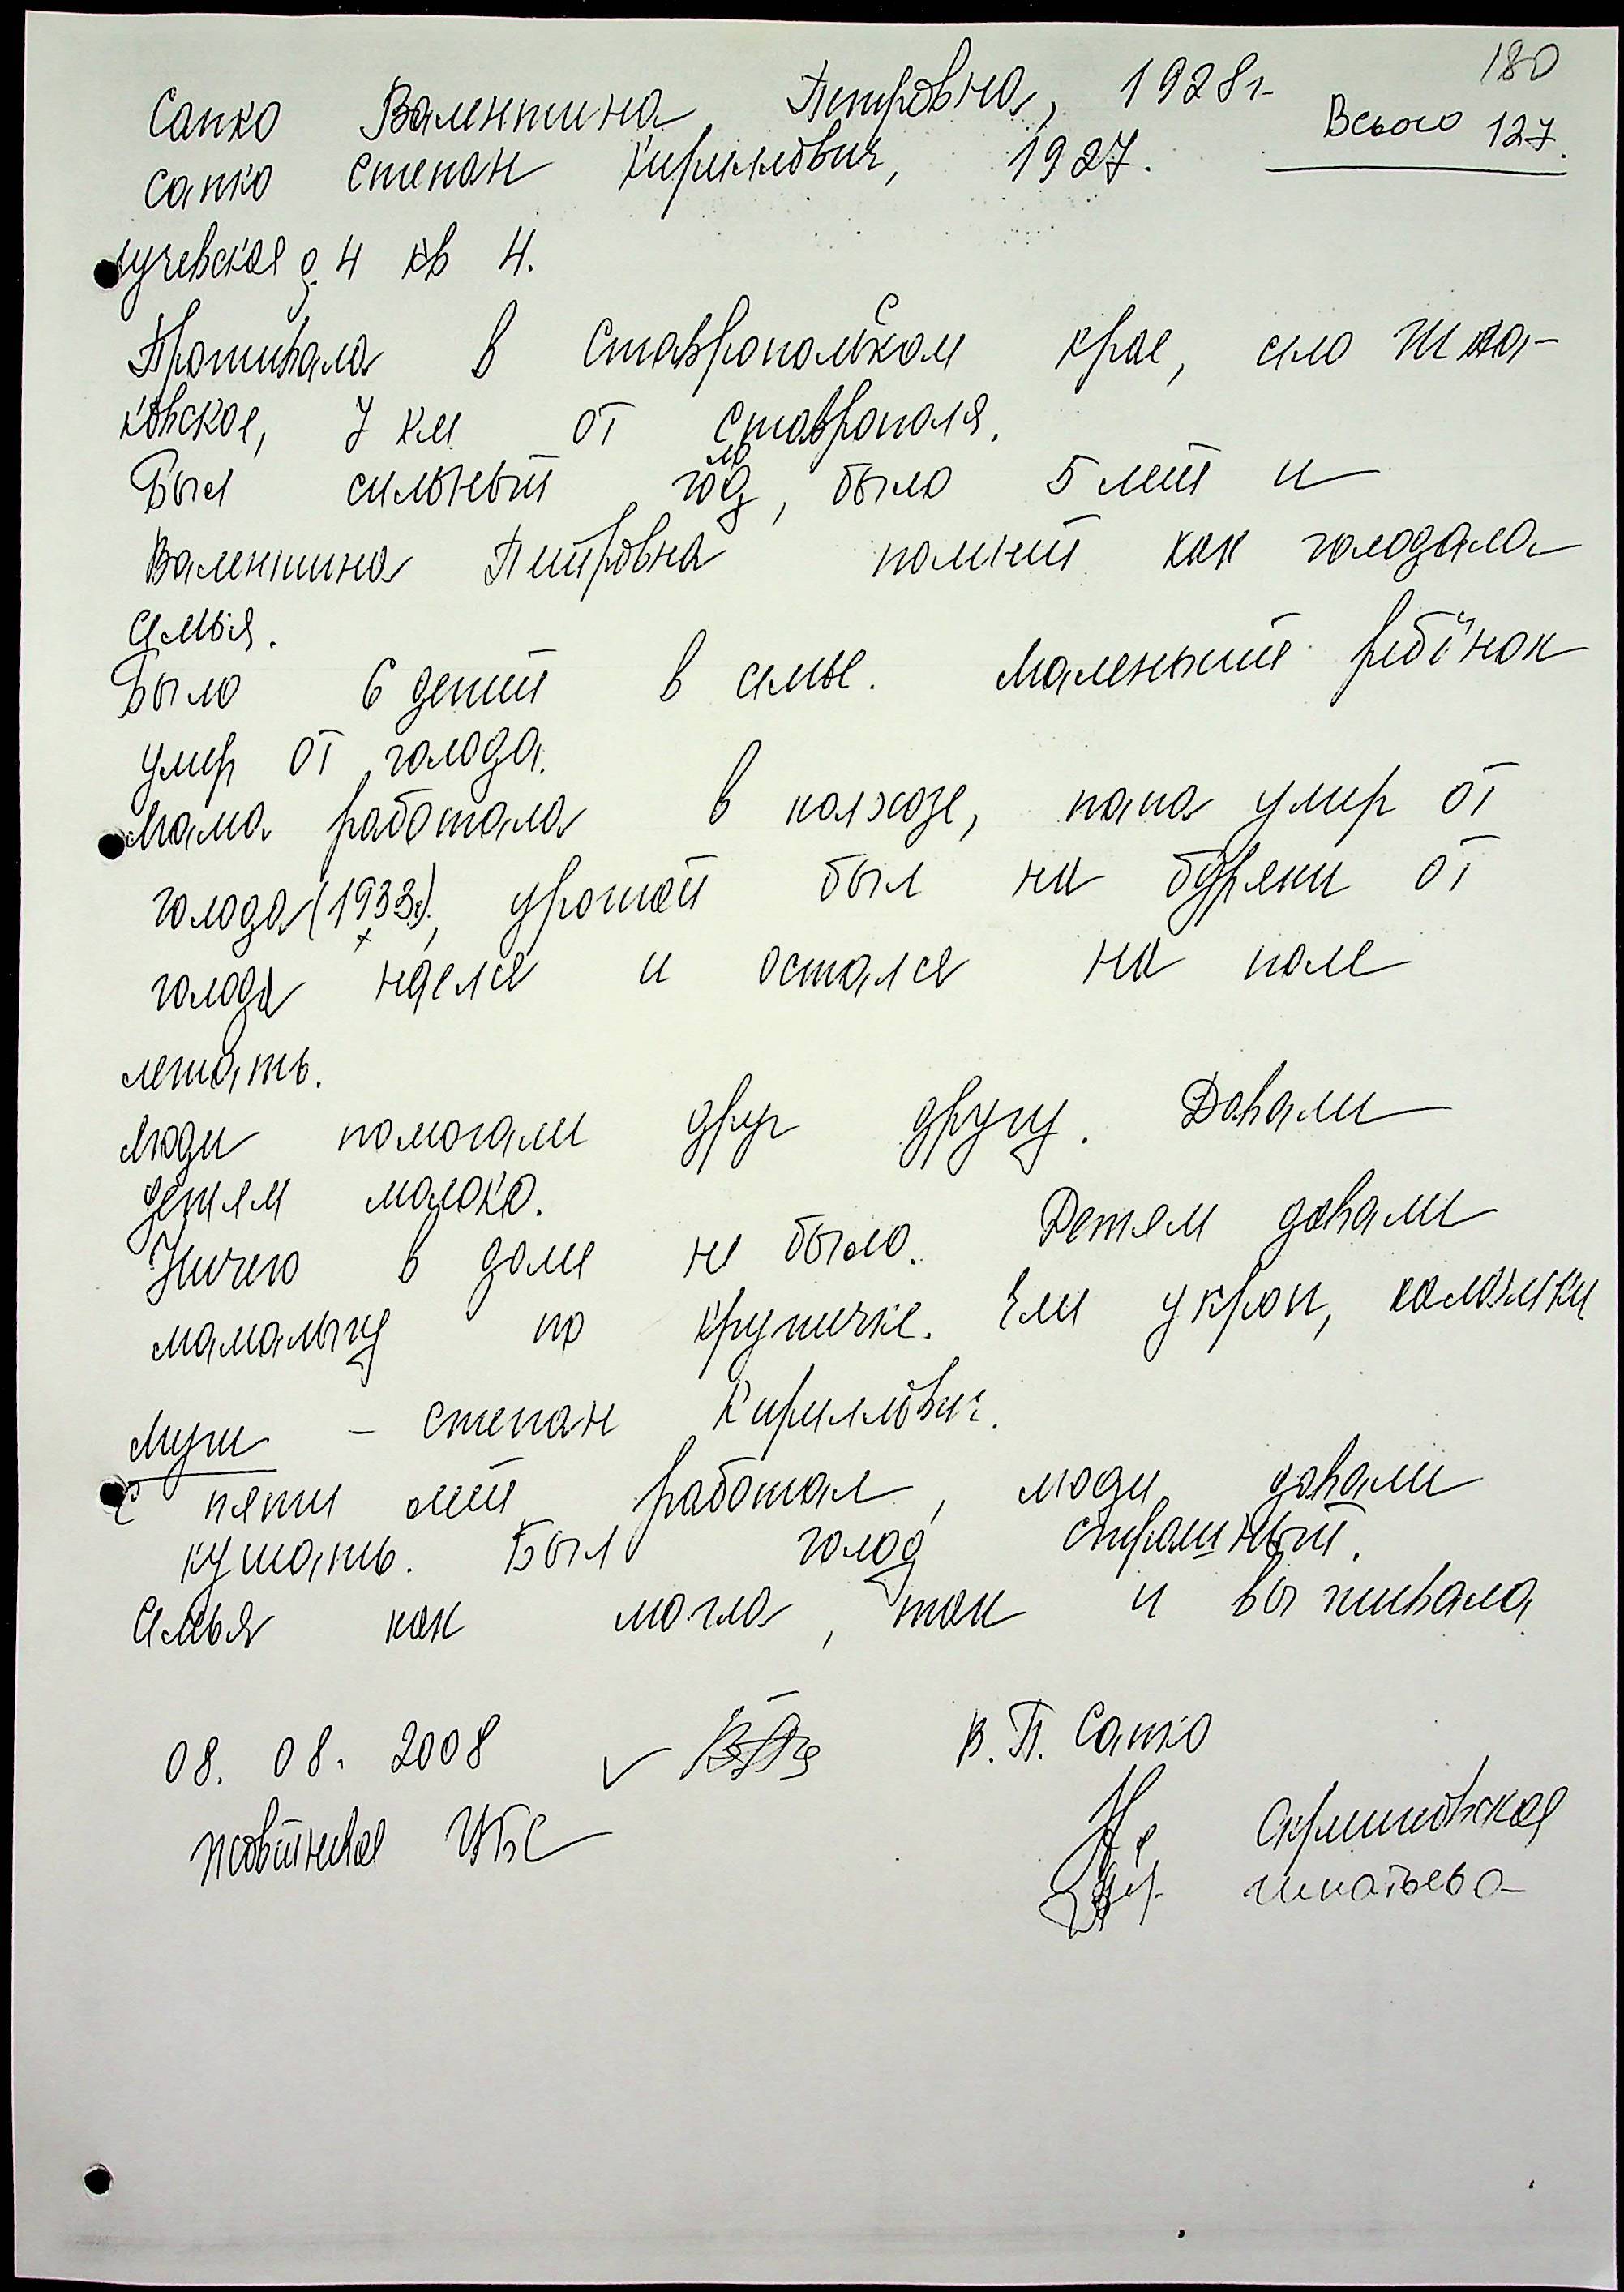 180
Сапко Валентина Петровна, 1928г.
Всього 127.
Сапко Степан Кириллович, 1927.
д. 4 кв 4.
Проживала в Ставропольском крае, село Шпа-
ковское, 7 км от Ставрополя.
Был сильный голод, было 5 лет и
Валентина Петровна помнит как голодала
семья.
Было 6 детей в семье. Маленький ребёнок
умер от голода.
Мама работала в колхозе, папа умер от
голода (1933г.), урожай был на буряки от
голода наелся и остался на поле
лежать.
Люди помогали друг другу. Давали
детям молоко.
Ничего в доме не было. Детям давали
мамалыгу по крупичке. Ели укроп, калачики
Муж – Степан Кириллович.
С пяти лет работал, люди давали
кушать. Был голод страшный.
Семья как могла, так и выживала.
08. 08. 2008 В. П. Сапко
Жовтневая ЦБС
Игнатьева